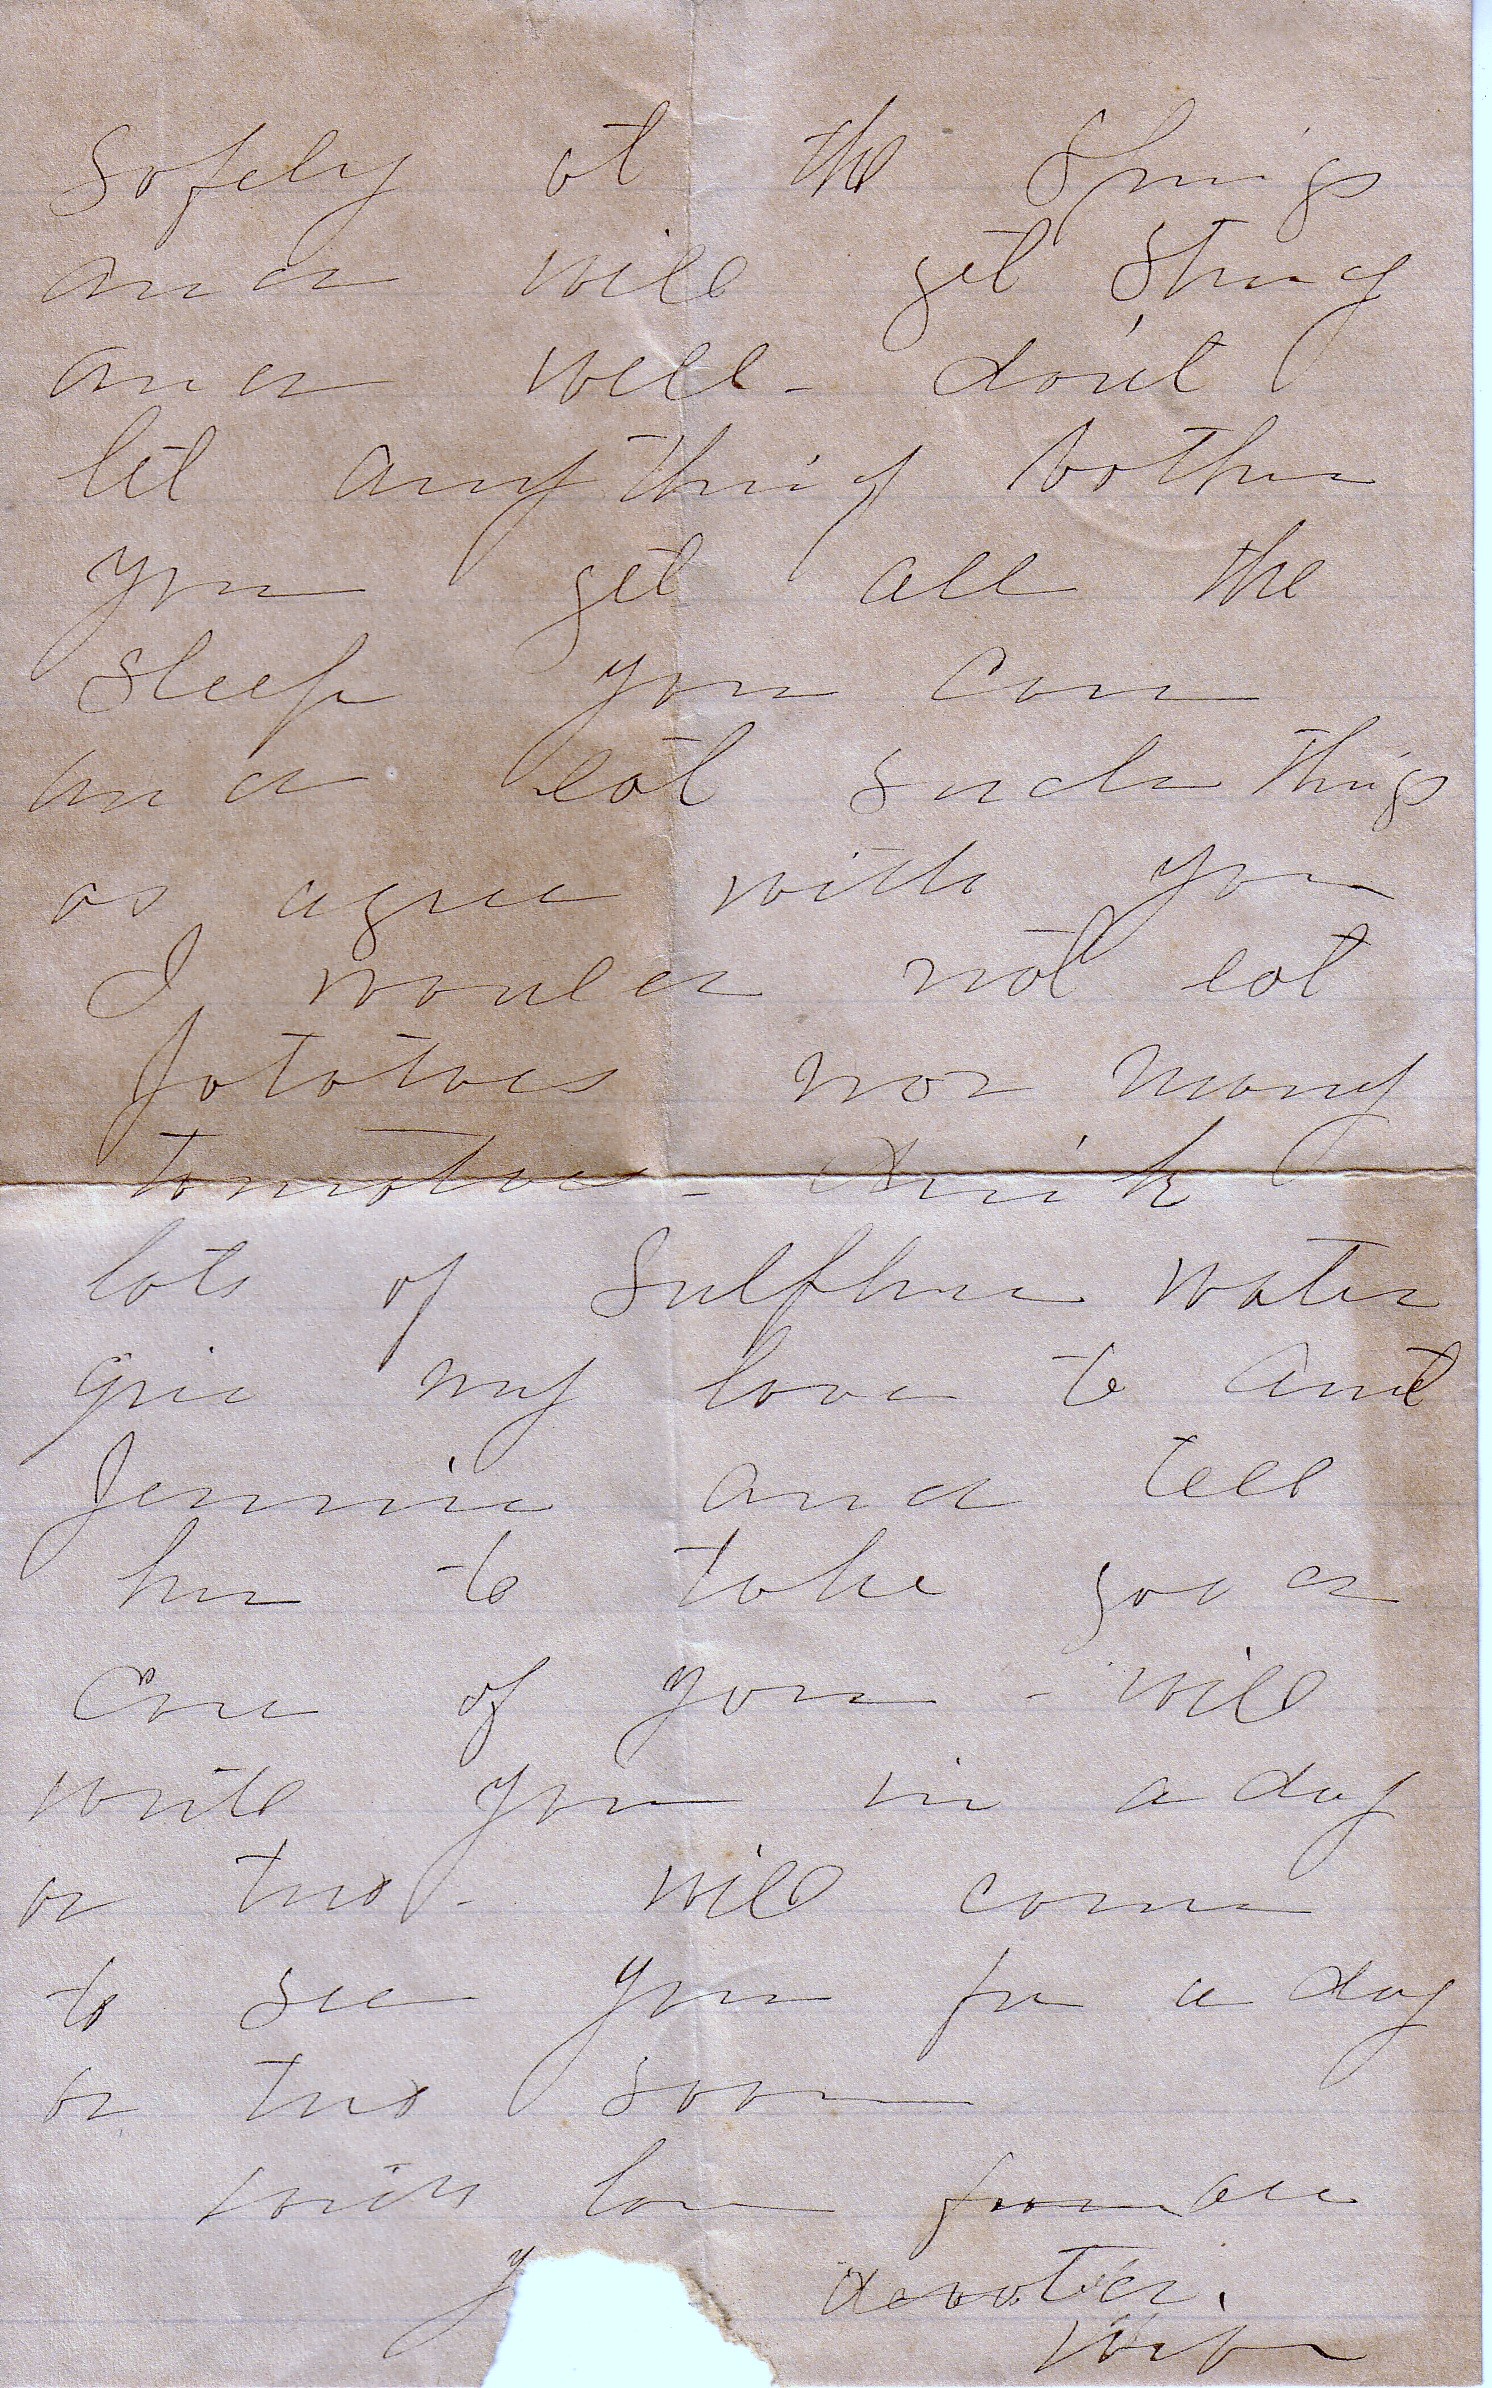 safely at the Springs
and will get strong
and well - don't
let anything bother
you get all the
sleep you can
and eat such things
as agree with you
I would not eat
potatoes nor many
tomatoes - drink
lots of Sulphur water
give my love to Aunt
Jennie and tell
her to take good
care of you - will
write you in a day
or two - will come
to see you for a day
or two soon
with love from all
devoted.